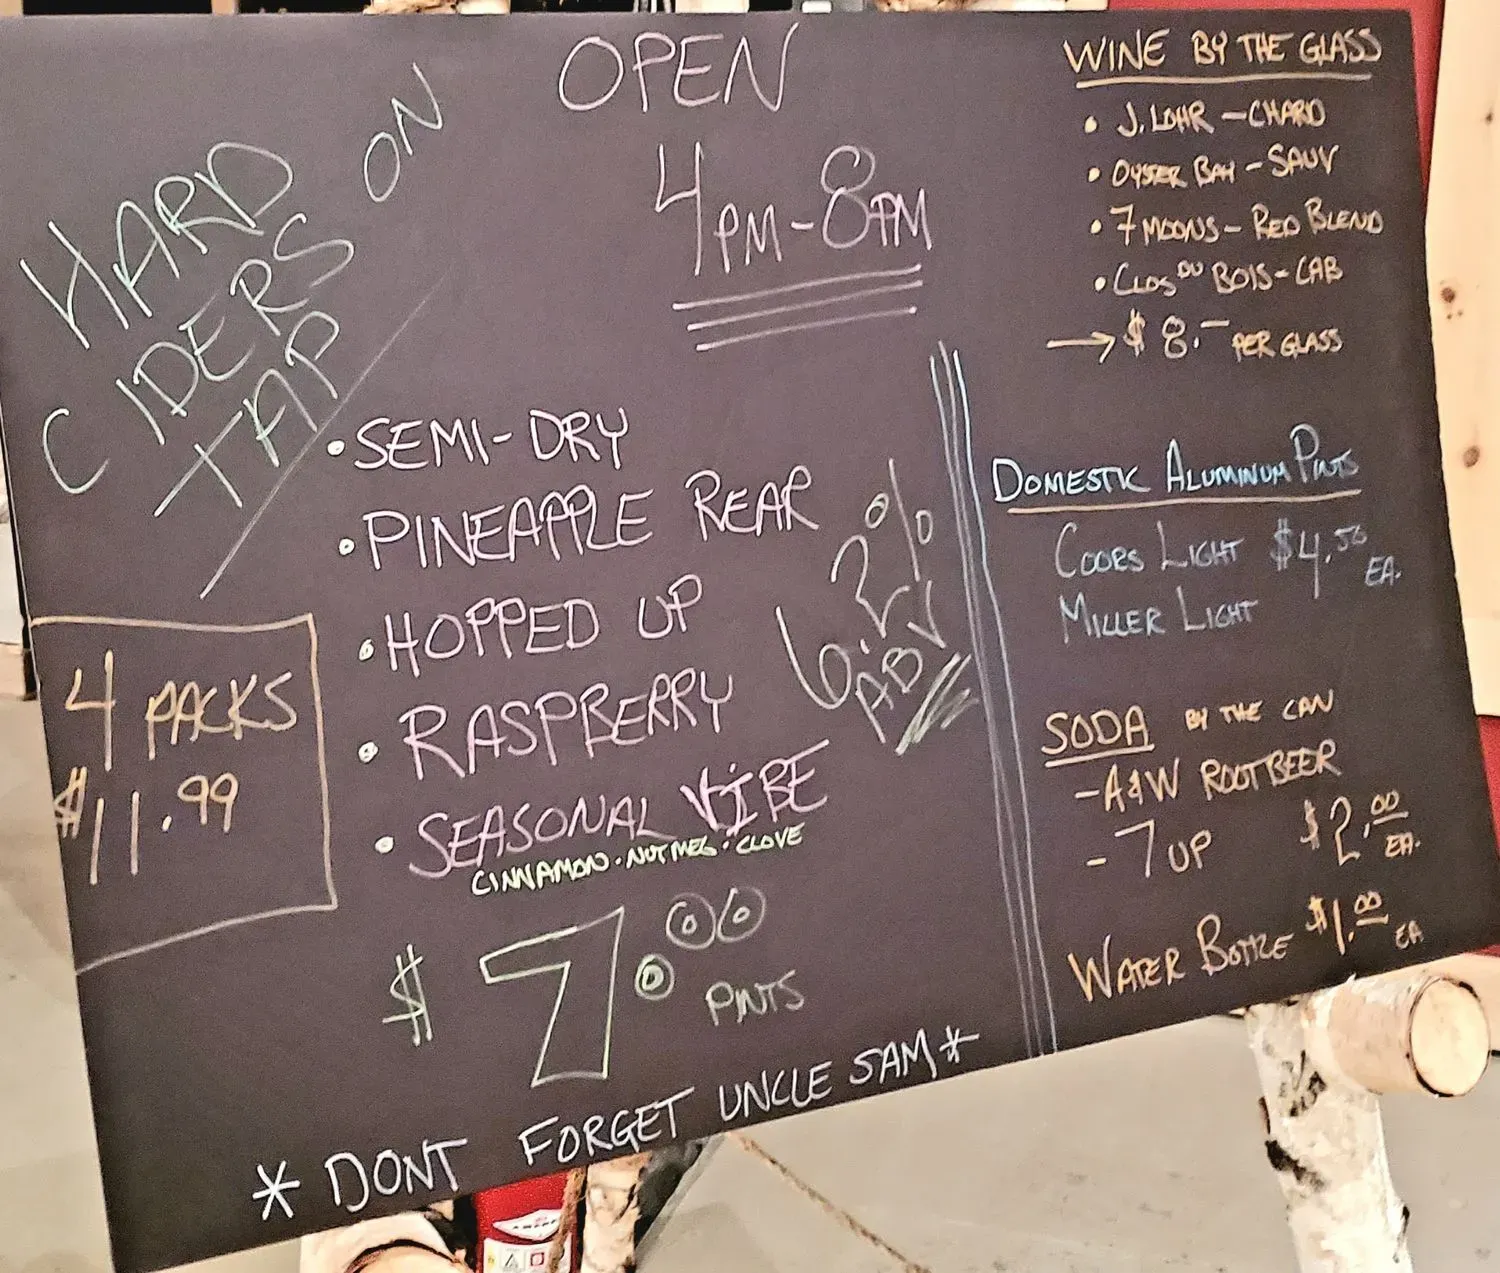 OPEN
4PM-8PM
HARD
CIDERS ON
TAP
• SEMI-DRY
• PINEAPPLE REAR
• HOPPED UP
• RASPBERRY
• SEASONAL VIBE
CINNAMON · NUTMEG · CLOVE
6.2%
ABV
$7.00
PINTS
4 PACKS
$11.99
WINE BY THE GLASS
• J. LOHR - CHARD
• OYSTER BAY - SAUV
• 7 MOONS - RED BLEND
• CLOS DU BOIS - CAB
→ $8.- PER GLASS
DOMESTIC ALUMINUM PINTS
COORS LIGHT $4.50 EA.
MILLER LIGHT
SODA BY THE CAN
- A&W ROOTBEER
- 7UP $2.00 EA.
WATER BOTTLE $1.00 EA
* DONT FORGET UNCLE SAM *